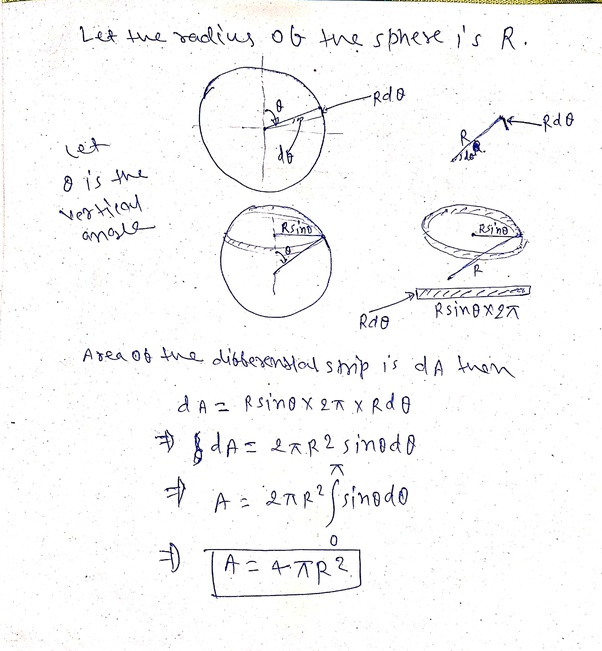 Let the radius of the sphere is R.
θ
Rdθ
dθ
R
dθ
Rdθ
Let
θ is the
vertical
angle
Rsinθ
θ
Rsinθ
R
Rdθ
Rsinθ×2π
Area of the differential strip is dA then
dA = Rsinθ × 2π × Rdθ
⇒ ∫dA = 2πR² sinθdθ
⇒ A = 2πR² ∫₀^π sinθdθ
⇒ A = 4πR²